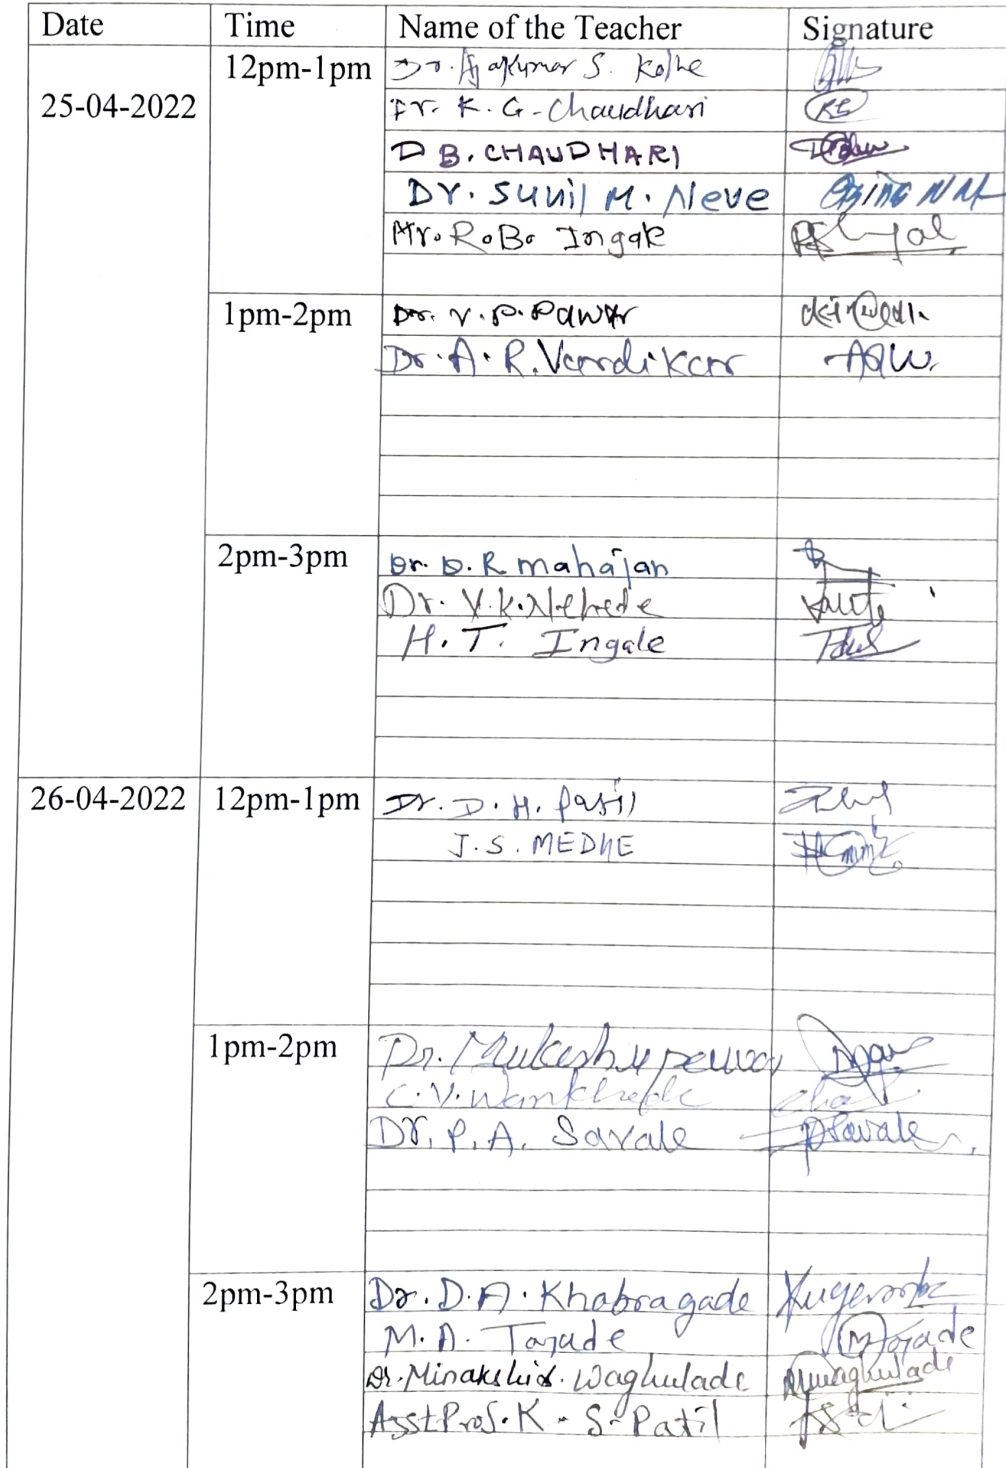 Date Time Name of the Teacher Signature
25-04-2022 12pm-1pm Dr. Ajaykumar S. Kolhe
Dr. K. G. Chaudhari KG
D B. CHAUDHARI
Dr. Sunil M. Neve
Mr. R. B. Ingale
1pm-2pm Dr. V. P. Pawar
Dr. A. R. Vardikar
2pm-3pm Dr. D. R mahajan
Dr. V. K. Nehede
H. T. Ingale
26-04-2022 12pm-1pm Dr. D. H. Patil
J. S. MEDHE
1pm-2pm Dr. Mukesh
C. V. Wankhede
Dr. P. A. Savale PSavale
2pm-3pm Dr. D. A. Khobragade
M. A. Tayade MTayade
Dr. Minakshi Waghulade Mwaghulade
Asst Prof. K. S. Patil